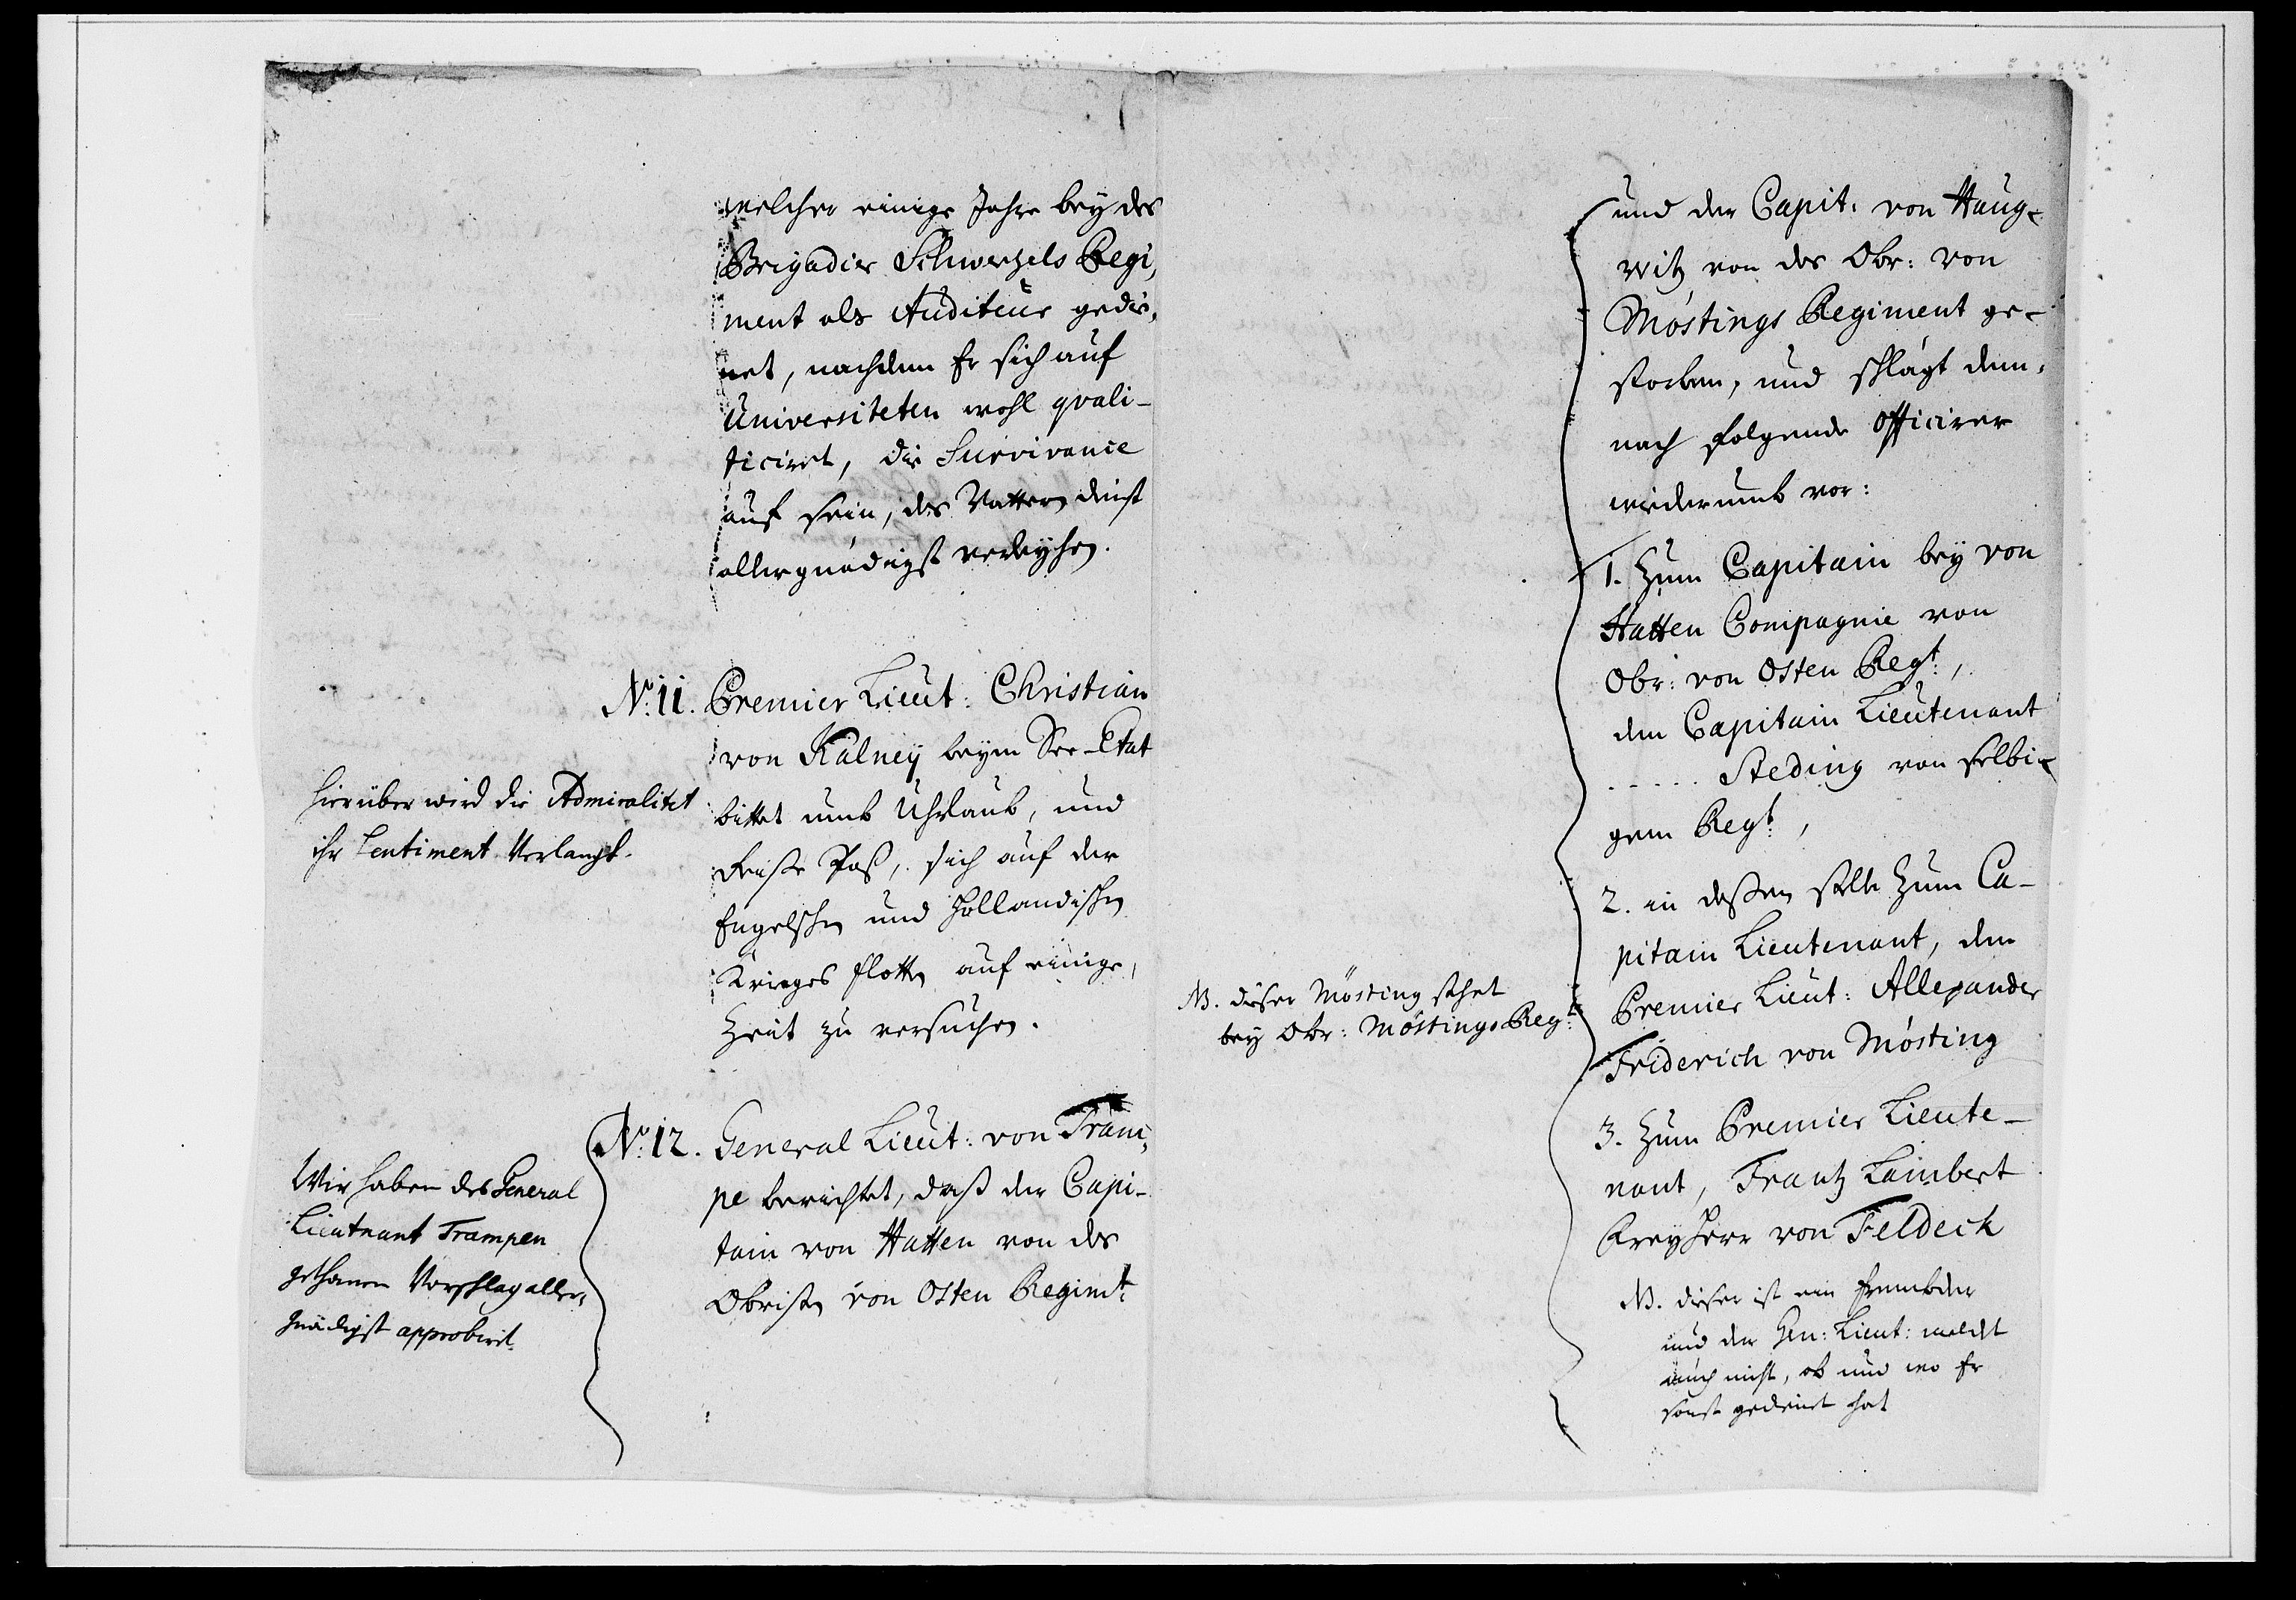 welcher einige Jahre bey des
Brigadier Schwerzels Regi,
ment als Auditeur gedie,
net, nachdem Er sich auf
Universiteten wohl quali-
ficiret, die Survivance
auf sein, des Vattern dienst
allergnädigst verleyhen.
No: 11. Premier Lieut: Christian
von Kalneÿ beym See-Etat
bittet umb Uhrlaub, und
Reise Pass, sich auf der
Engelschen und Holländischen
Krieges flotte auf einige,
Zeit zu versuchen.
hierüber wird die Admiralitet
ihr Sentiment verlangt.
No: 12. General Lieut: von Tram,
pe berichtet, daß der Capi-
tain von Hatten von des
Obristen von Osten Regimt:
Wir haben des General
Lieutnant Trampen
gethanen Vorschlag aller,
gnädigst approbirt.
und der Capit: von Haug-
witz von des Obr: von
Möstings Regiment ge-
storben, und schlägt dem,
nach folgende Officirer
wiederumb vor:
1. Zum Capitain bey von
Hatten Compagnie von
Obr: von Osten Regt:,
den Capitain Lieutenant
..... Steding von selbi-
gem Regt:,
2. in dessen stelle Zum Ca-
pitain Lieutenant, den
Premier Lieut: Allexander
Friderich von Mösting
NB. dieser Mösting stehet
bey Obr: Möstings Regt:
3. Zum Premier Lieute-
nant, Frantz Lambert
Freyherr von Feldeck
NB. dieser ist ein frembder
und der Gen: Lieut: meldet
auch nicht, ob und wo Er
sonst gedienet hat